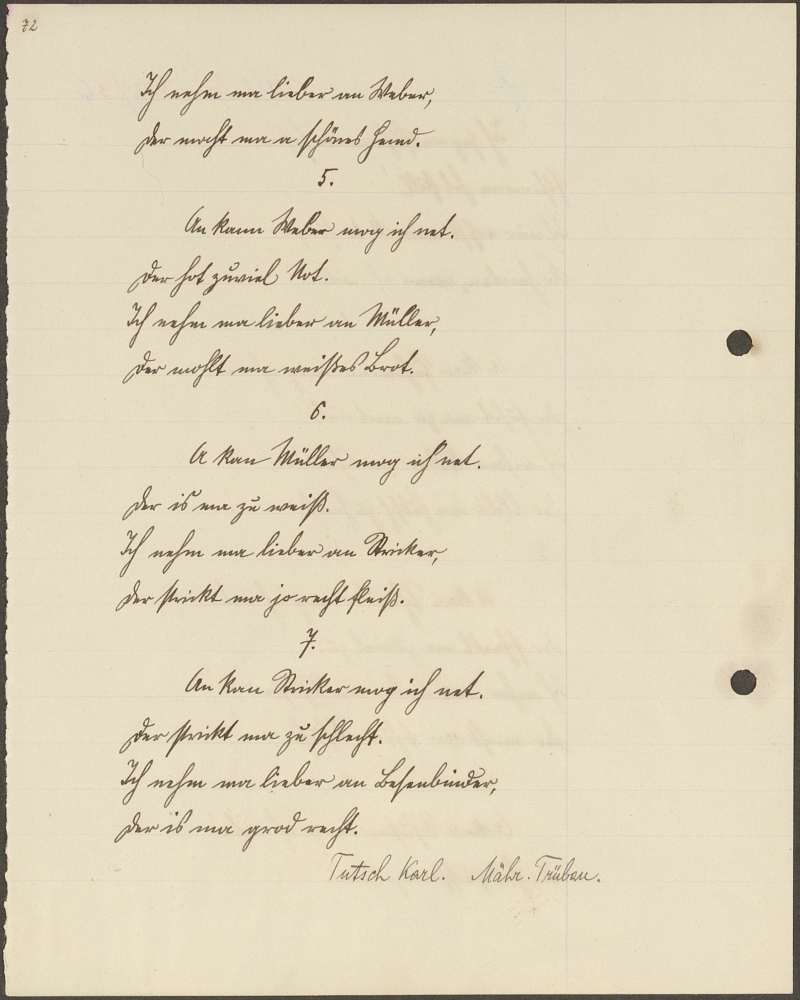 72
Ich nehm ma lieber an Weber,
der macht ma a schönes Hemd.
5.
An kann Weber mog ich net.
der hot zuviel Not.
Ich nehm ma lieber an Müller,
der mohlt ma weißes Brot.
6.
A kan Müller mog ich net.
der is ma zu weiß.
Ich nehm ma lieber an Stricker,
der strickt ma jo recht fleiß.
7.
An kan Stricker mog ich net.
der strickt ma zu schlecht.
Ich nehm ma lieber an Besenbinder,
der is ma grod recht.
Tutsch Karl. Mähr. Trübau.